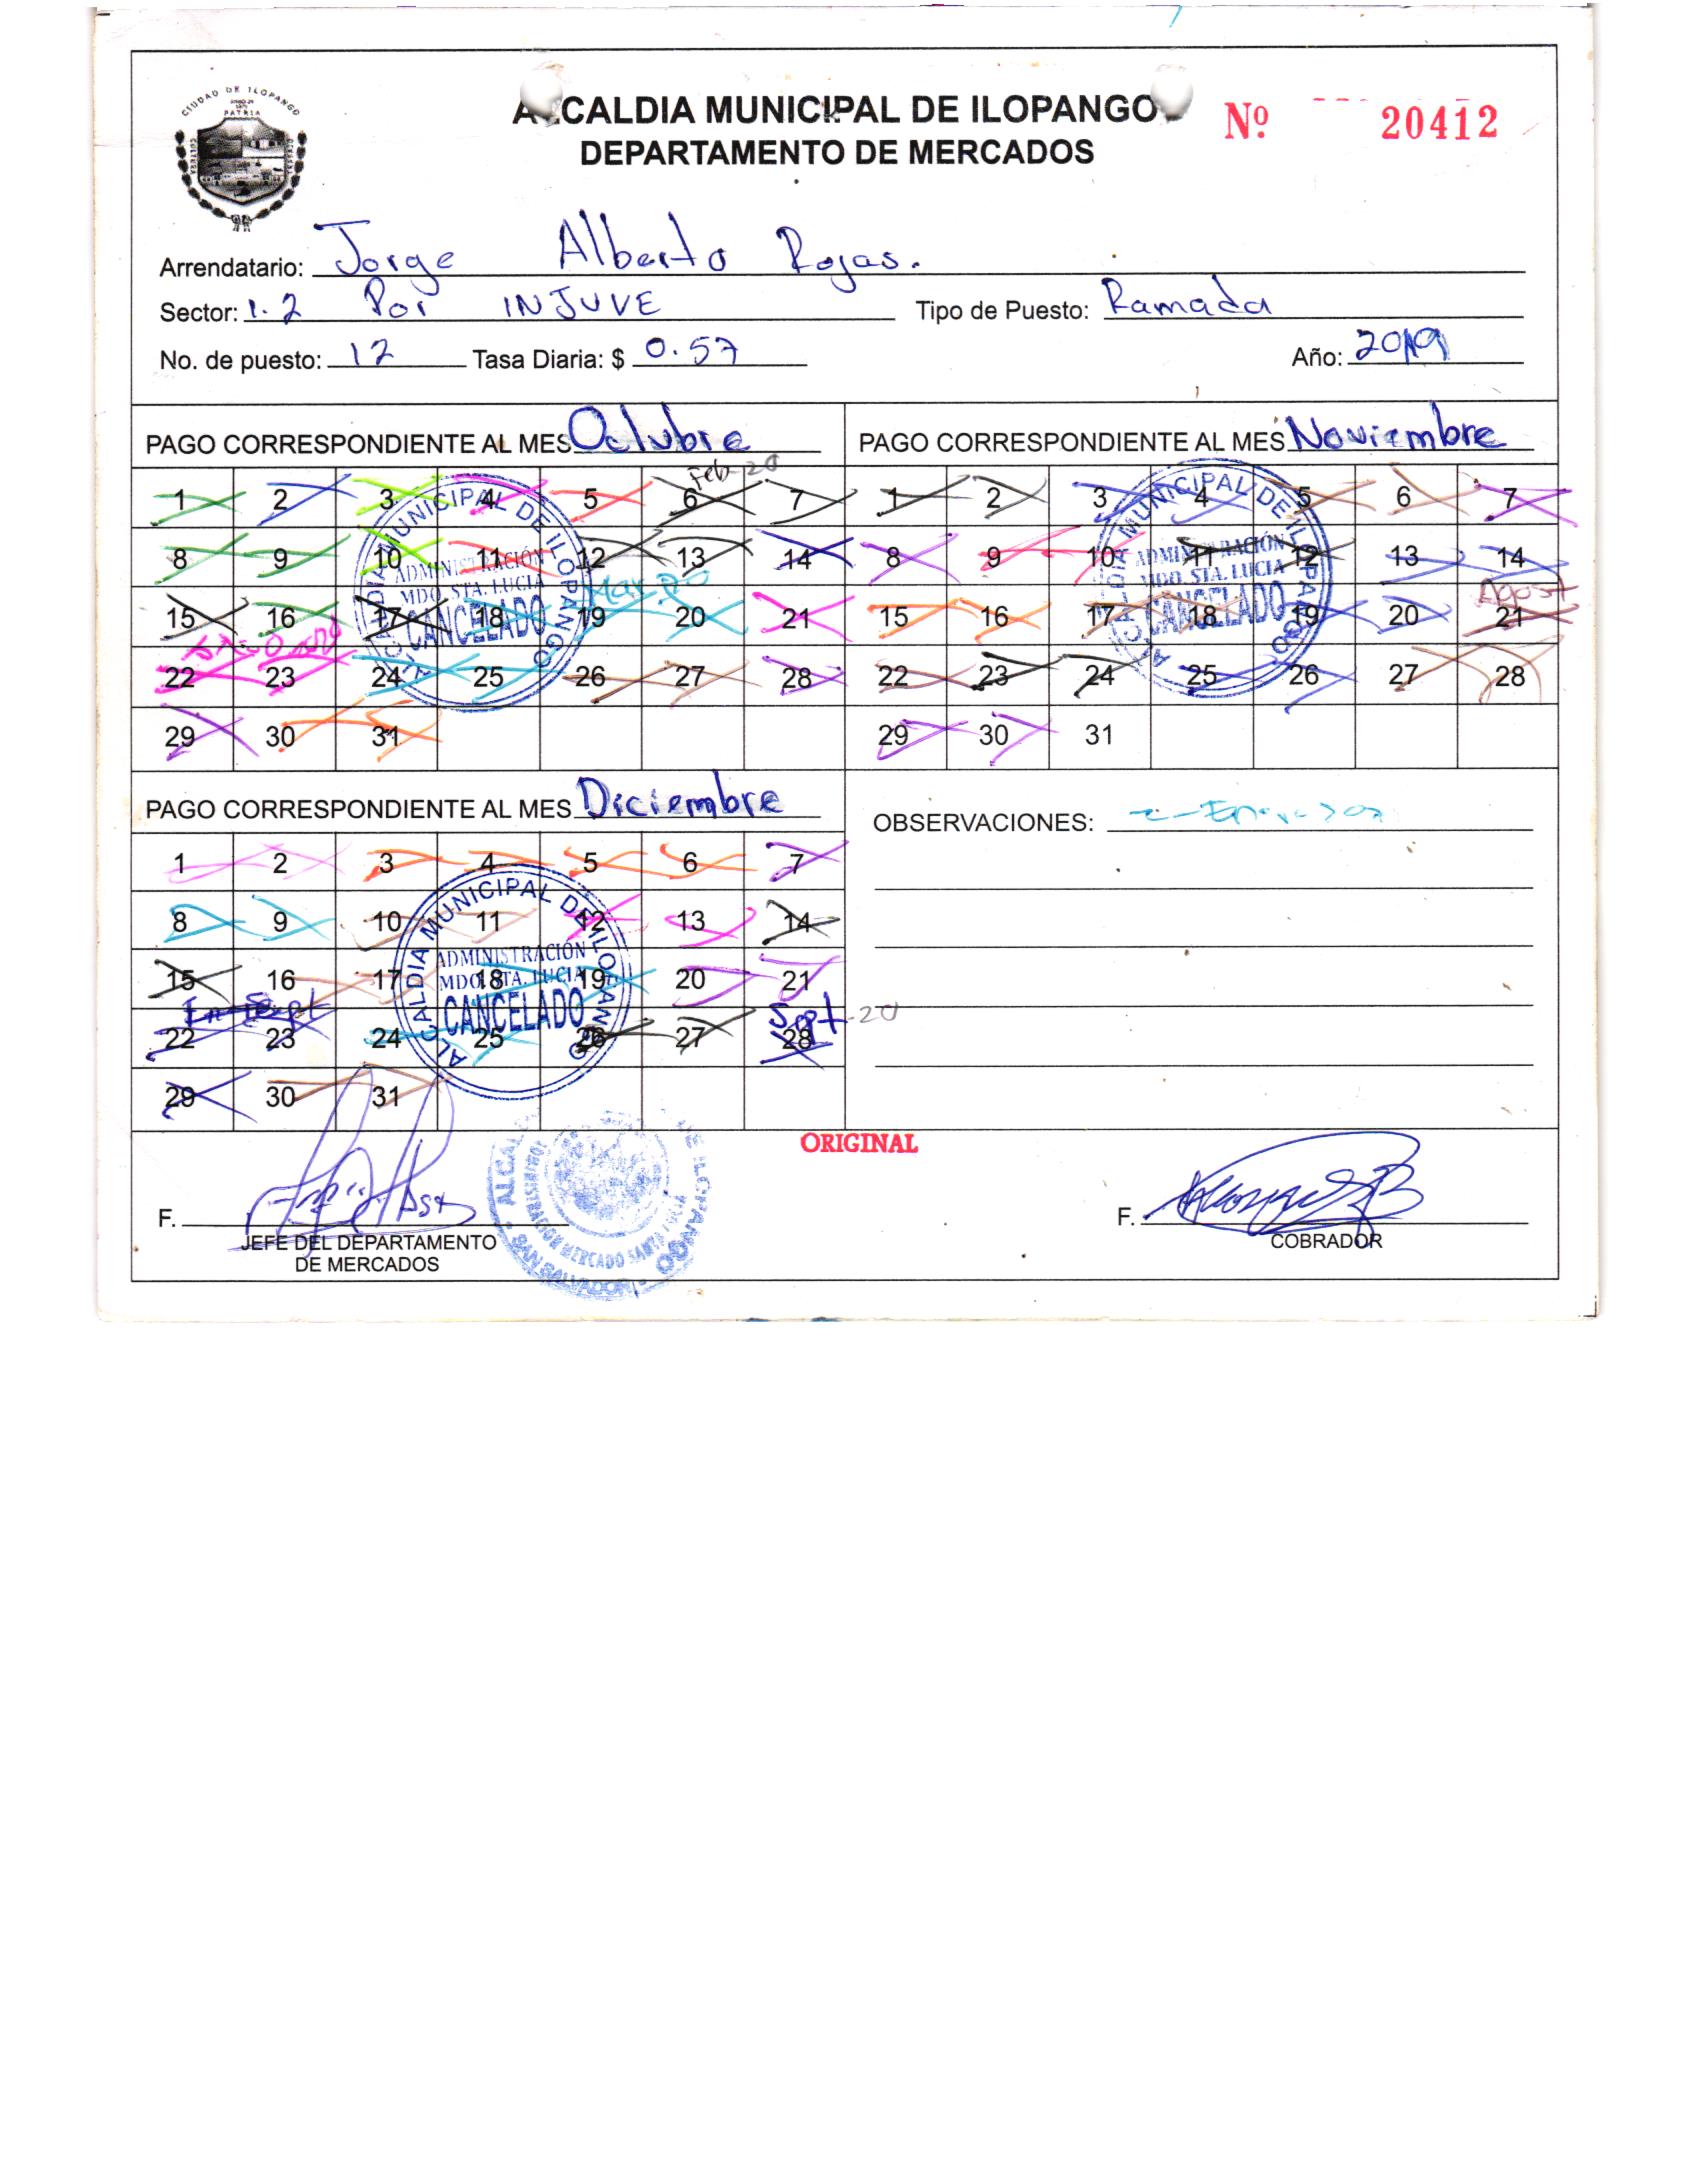 CIUDAD DE ILOPANGO
PATRIA
ALCALDIA MUNICIPAL DE ILOPANGO
DEPARTAMENTO DE MERCADOS
Nº 20412
Arrendatario: Jorge Alberto Rojas.
Sector: 1.2 Por INJUVE Tipo de Puesto: Ramada
No. de puesto: 12 Tasa Diaria: $ 0.57 Año: 2019
PAGO CORRESPONDIENTE AL MES Octubre
Feb-20
1 2 3 4 5 6 7
8 9 10 11 12 13 14
Mar.20
15 16 17 18 19 20 21
22 23 24 25 26 27 28
29 30 31
ALCALDIA MUNICIPAL DE ILOPANGO
ADMINISTRACIÓN
MDO. STA. LUCIA
CANCELADO
PAGO CORRESPONDIENTE AL MES Noviembre
1 2 3 4 5 6 7
8 9 10 11 12 13 14
Agost
15 16 17 18 19 20 21
22 23 24 25 26 27 28
29 30 31
ALCALDIA MUNICIPAL DE ILOPANGO
ADMINISTRACIÓN
MDO. STA. LUCIA
CANCELADO
PAGO CORRESPONDIENTE AL MES Diciembre
1 2 3 4 5 6 7
8 9 10 11 12 13 14
15 16 17 18 19 20 21
Sept-20
22 23 24 25 26 27 28
29 30 31
ALCALDIA MUNICIPAL DE ILOPANGO
ADMINISTRACIÓN
MDO. STA. LUCIA
CANCELADO
OBSERVACIONES:
ORIGINAL
F.
JEFE DEL DEPARTAMENTO
DE MERCADOS
ADMINISTRACION MERCADO SANTA LUCIA
SAN SALVADOR
F.
COBRADOR